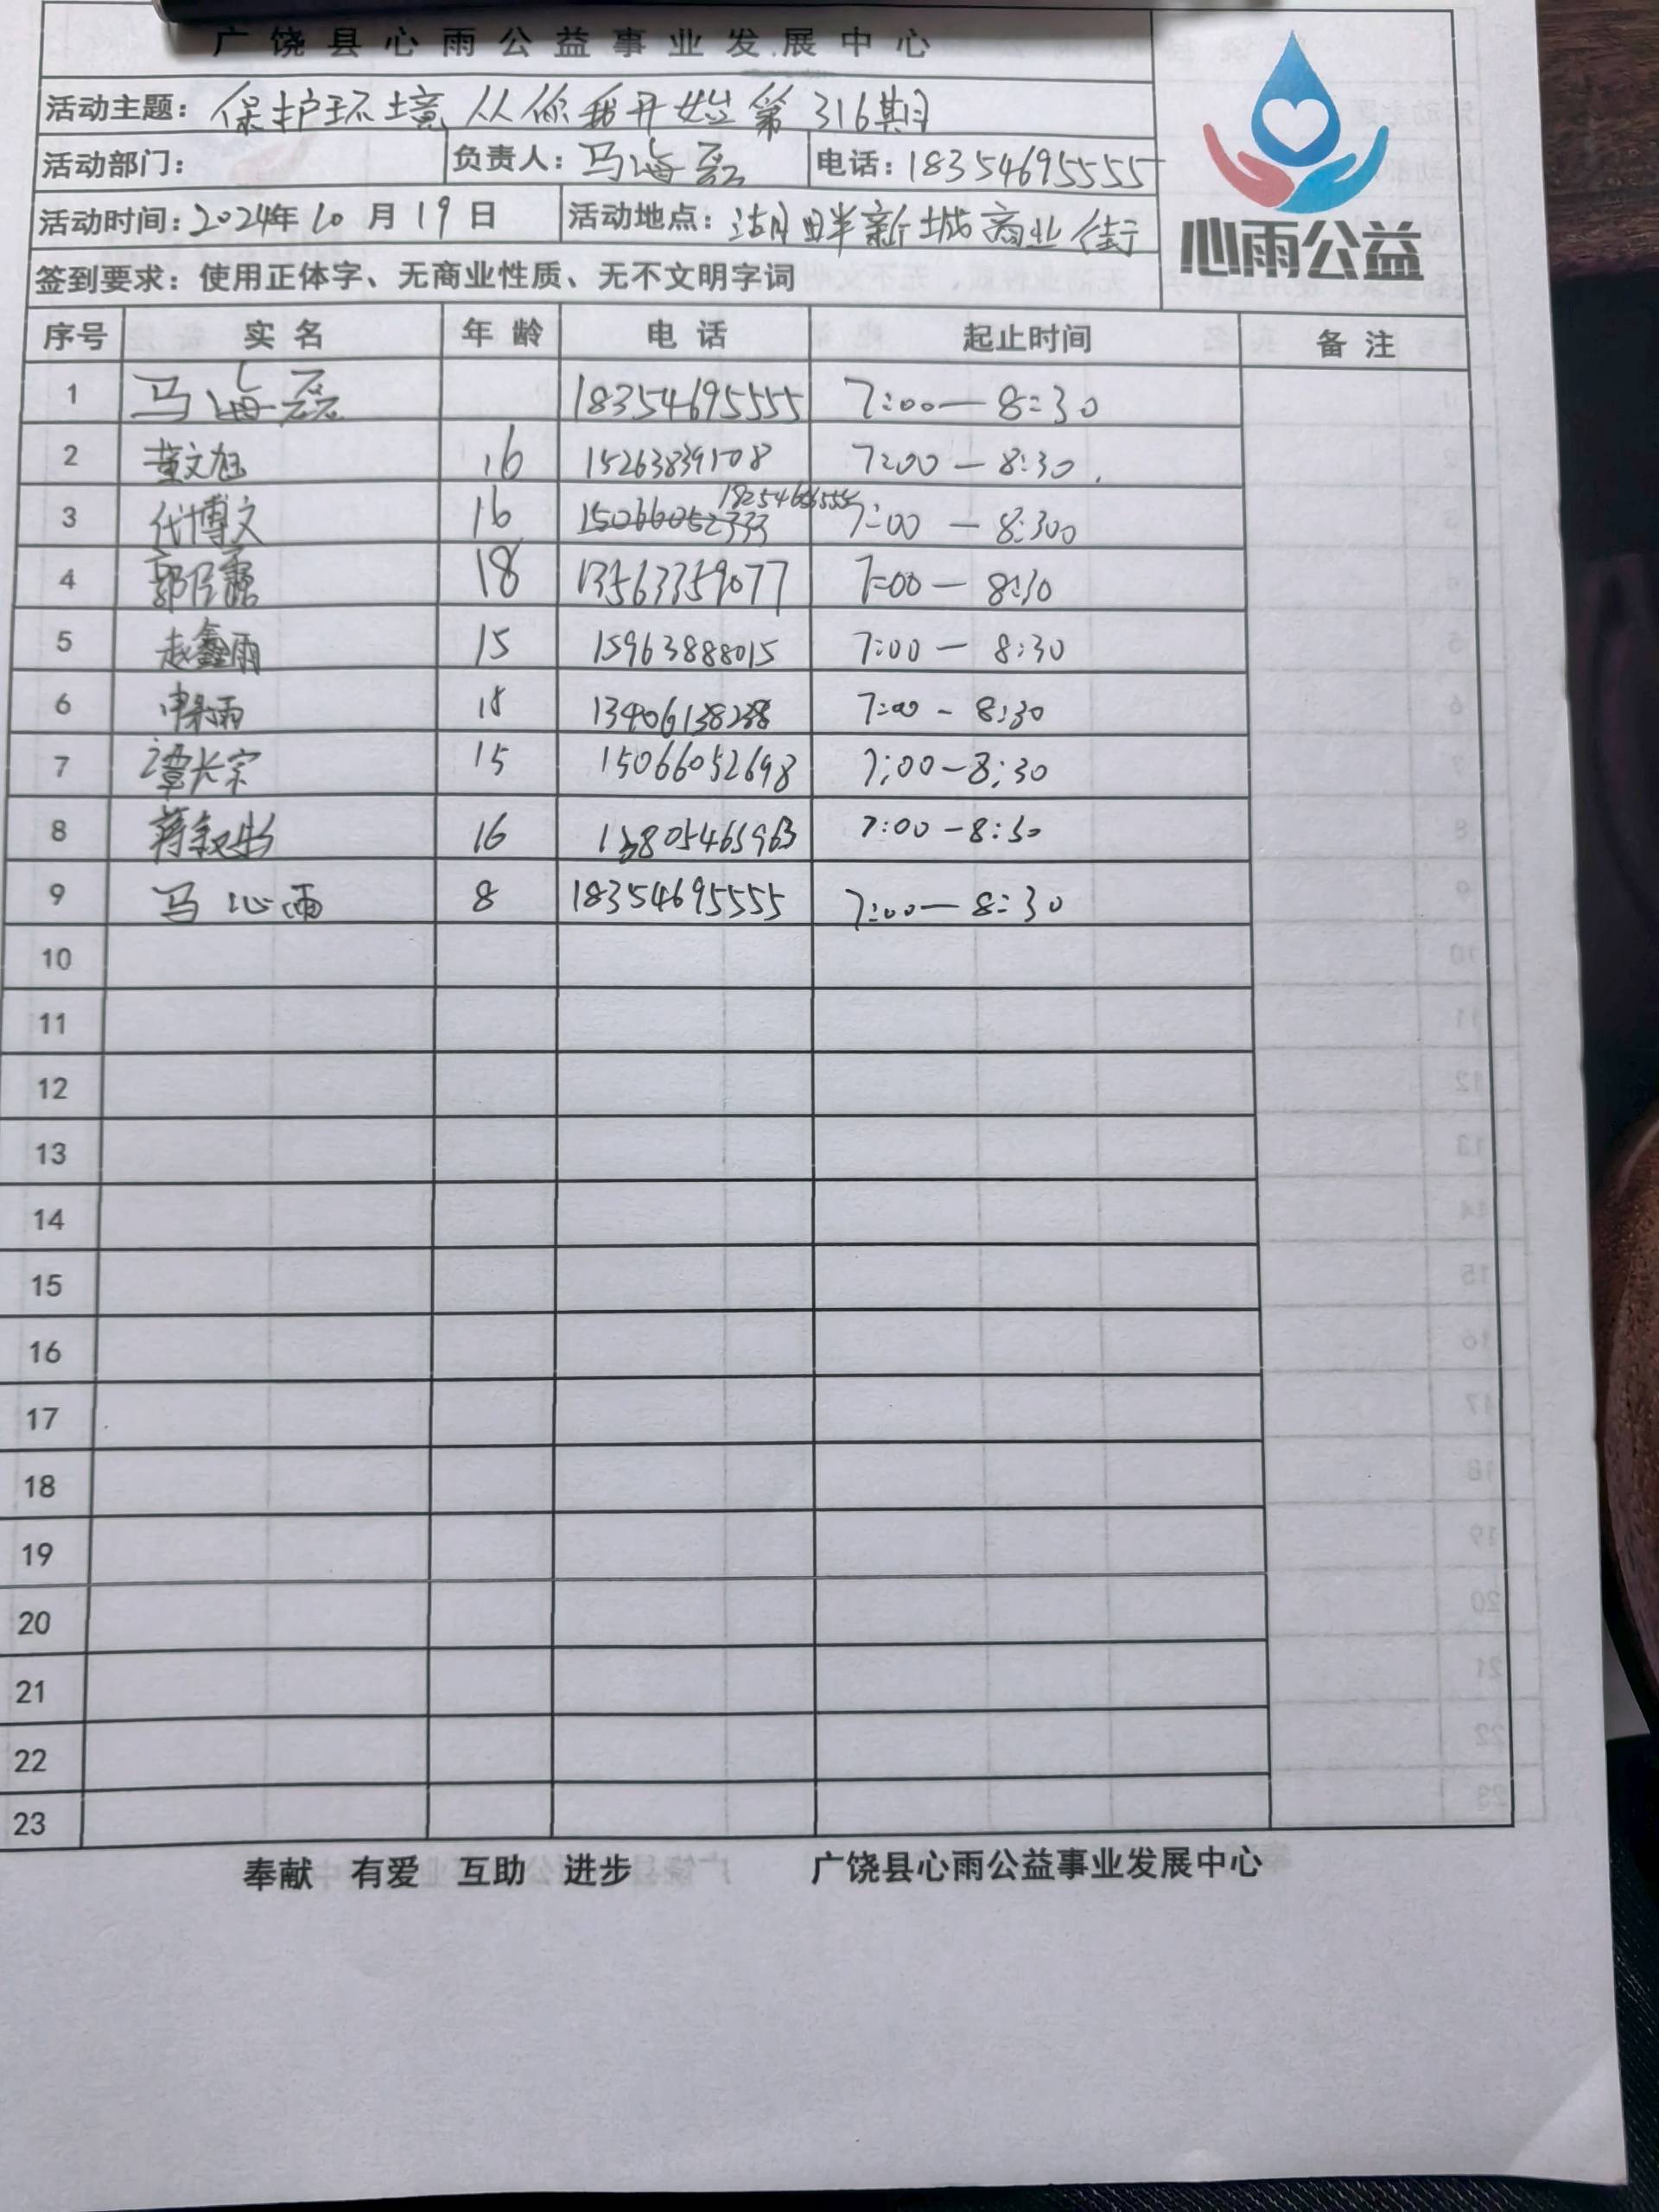 广饶县心雨公益事业发展中心
活动主题：保护环境从你我开始第316期
心雨公益
活动部门： 负责人：马海磊 电话：18354695555
活动时间：2024年10月19日 活动地点：湖畔新城商业街
签到要求：使用正体字、无商业性质、无不文明字词
序号 实名 年龄 电话 起止时间 备注
1 马海磊 18354695555 7:00—8:30
2 董文旭 16 15263839108 7:00—8:30
3 代博文 16 7:00—8:300
4 18 13563359077 7:00—8:30
5 赵鑫雨 15 15963888015 7:00—8:30
6 18 13406138238 7:00-8:30
7 谭长宗 15 15066052698 7:00-8:30
8 16 13805465963 7:00-8:30
9 马心雨 8 18354695555 7:00—8:30
10
11
12
13
14
15
16
17
18
19
20
21
22
23
奉献 有爱 互助 进步 广饶县心雨公益事业发展中心